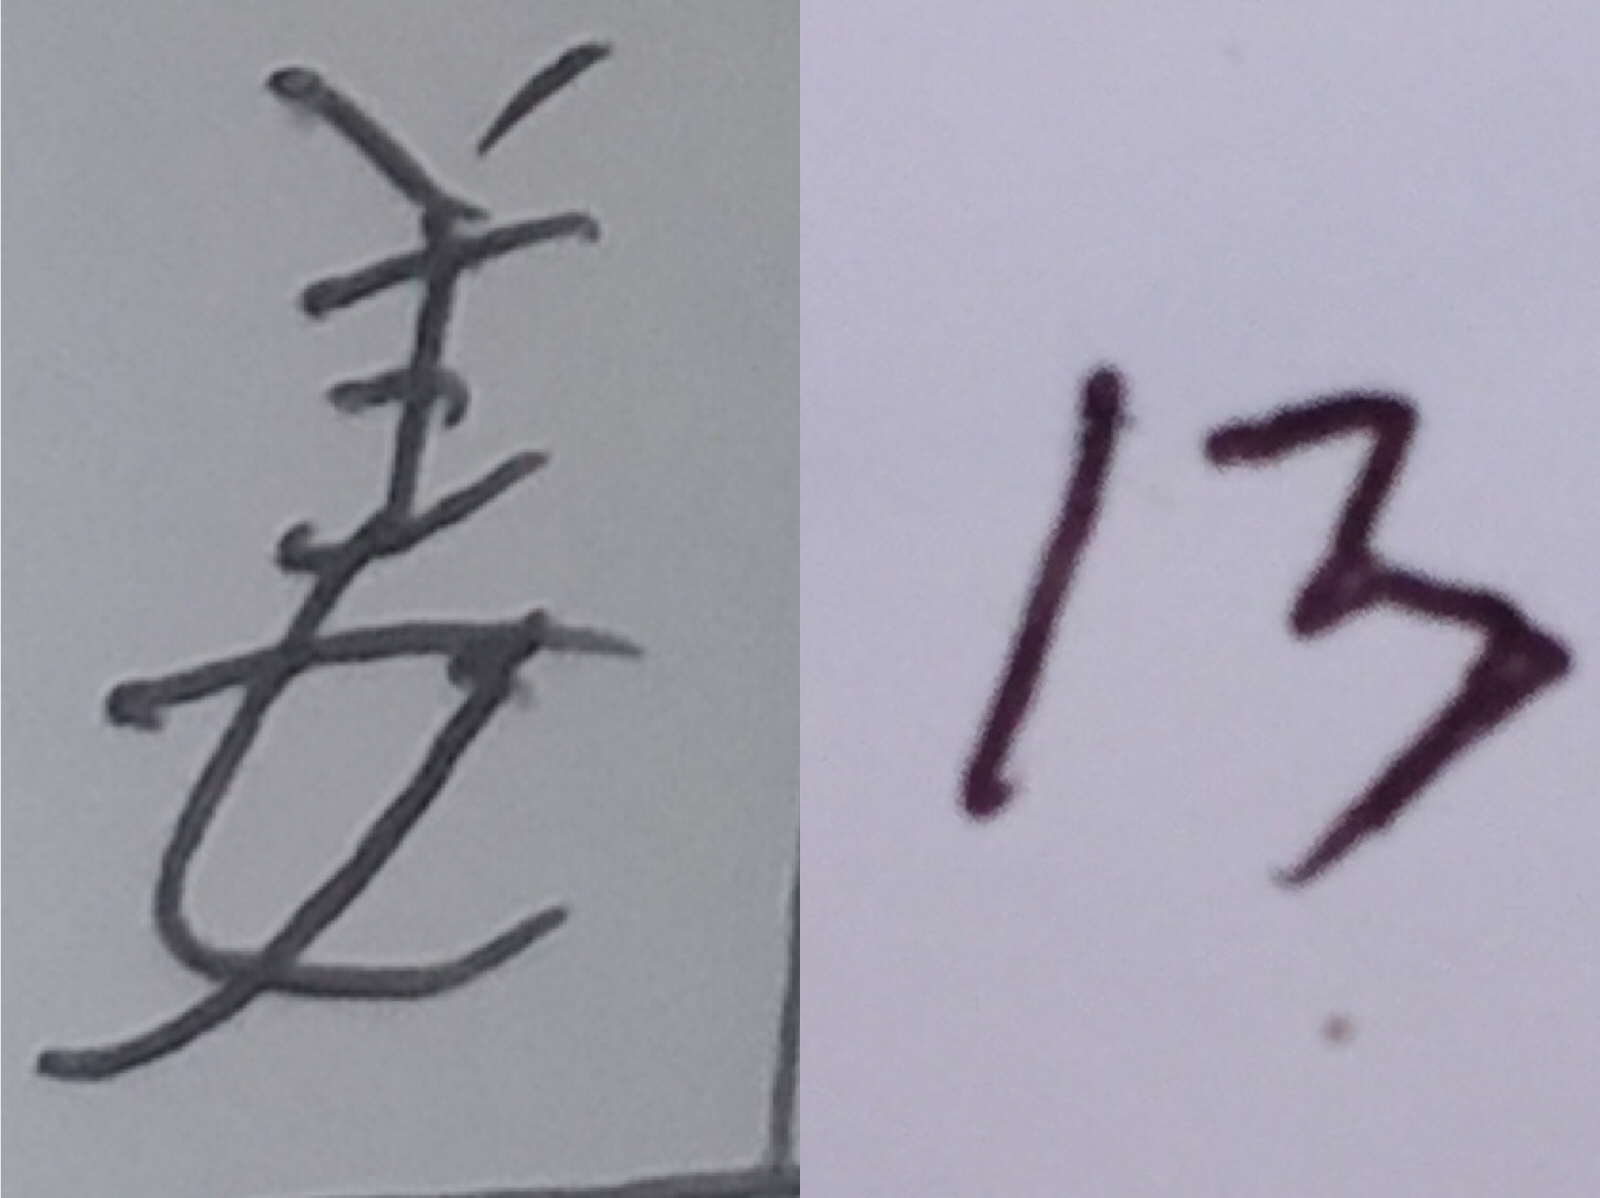 姜 13